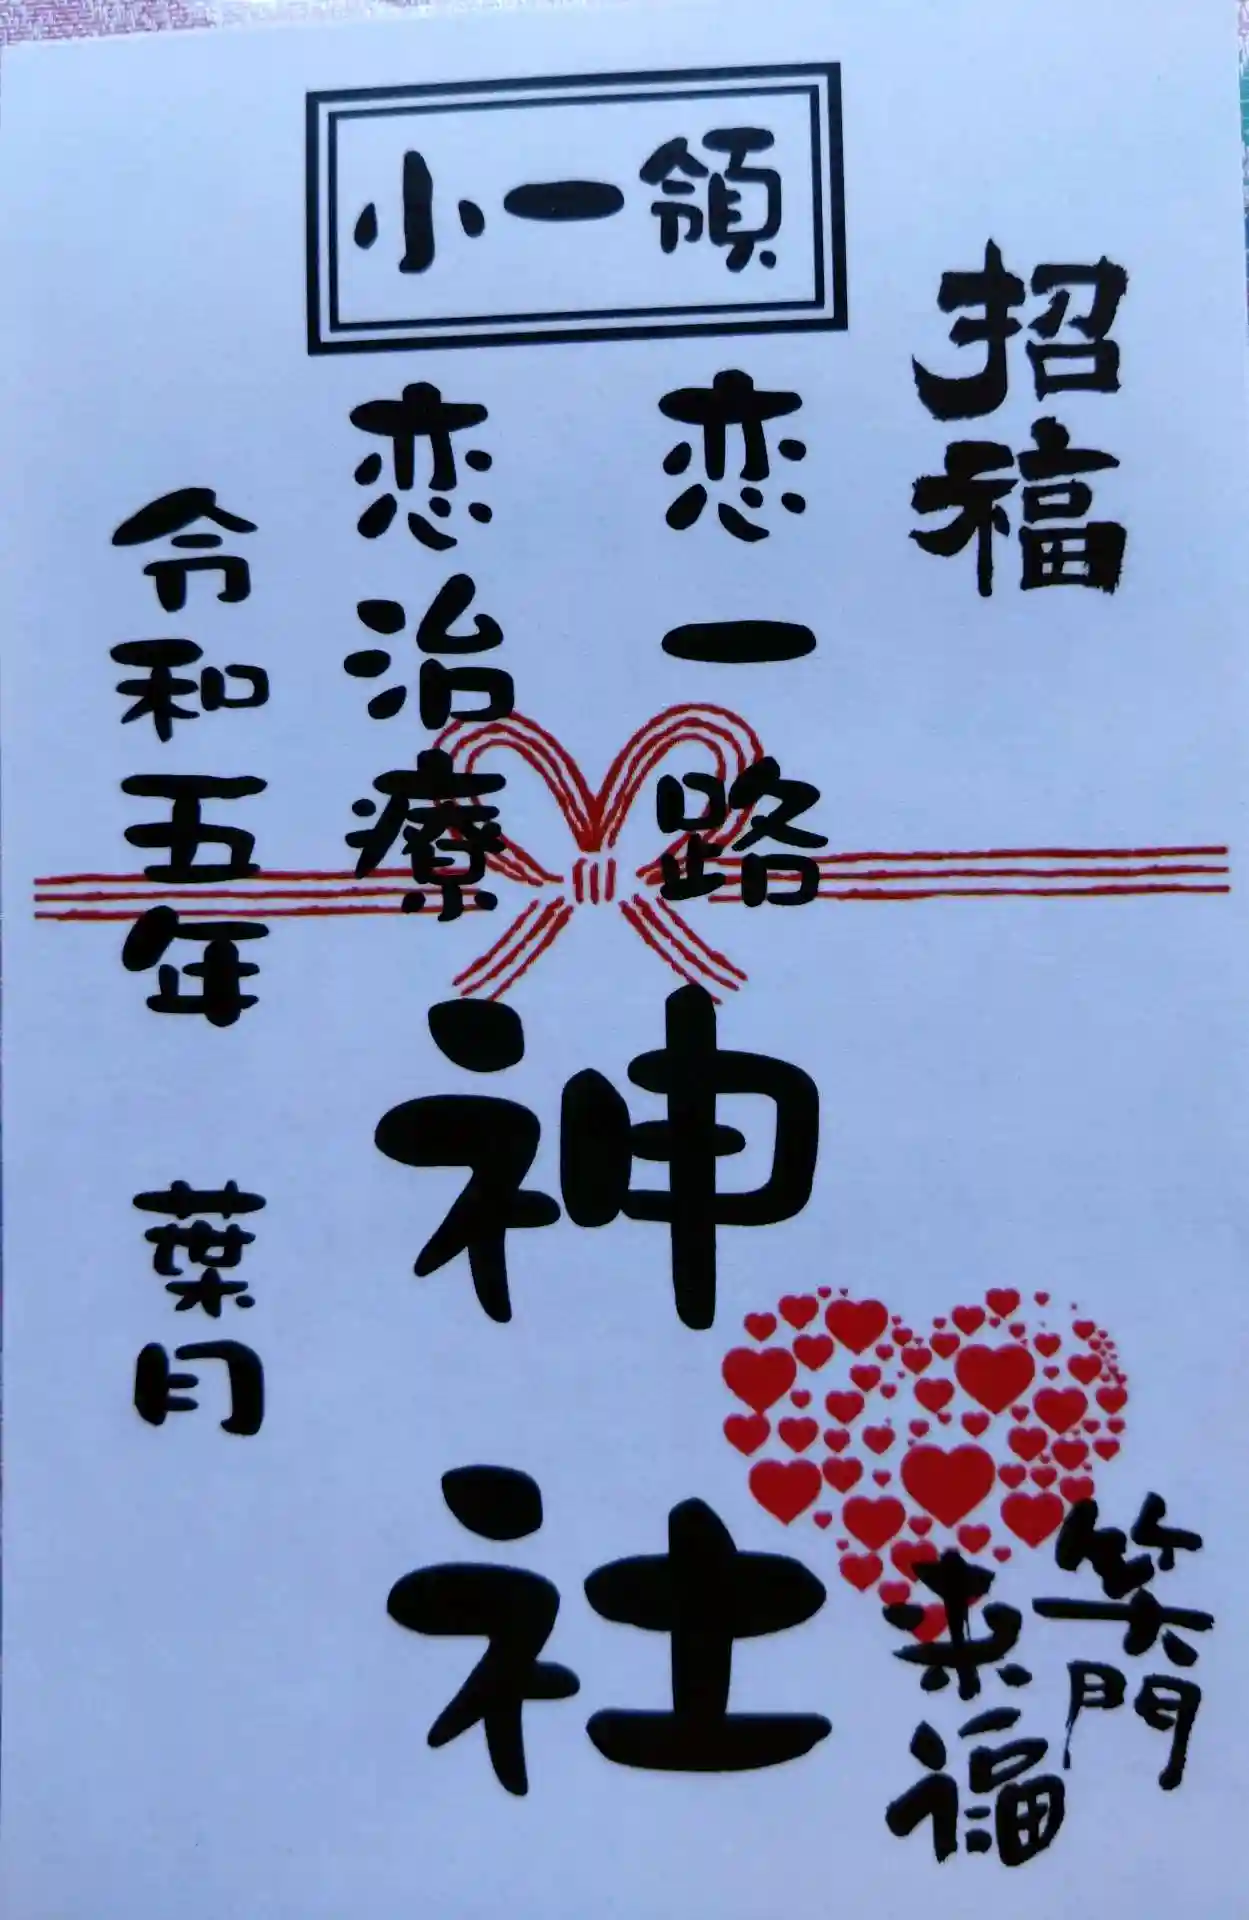 小一領
招福
恋一路
恋治療
神社
令和五年 葉月
笑門
来福